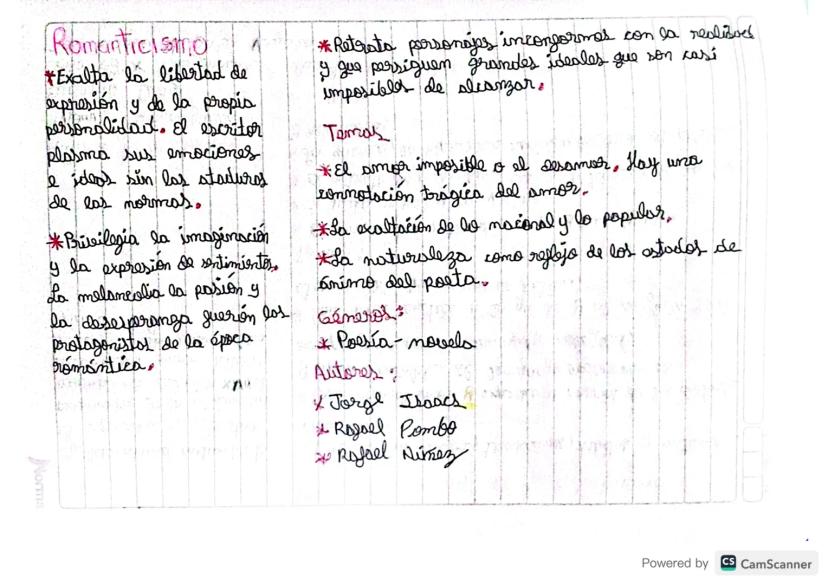 Romanticismo
*Exalta la libertad de
expresión y de la propia
personalidad. El escritor
plasma sus emociones
e ideas sin las ataduras
de las normas.
*Privilegia la imaginación
y la expresión de sentimientos.
La melancolia la pasión y
la desesperanza guerión los
protagonistas de la época
romántica.
*Retrata personajes inconformes con la realidad
y que persiguen grandes ideales que son casi
imposibles de alcanzar.
Temas
*El amor imposible o el desamor. Hay una
connotación trágica del amor.
*La exaltación de lo nacional y lo popular.
*La naturaleza como reflejo de los estados de
ánimo del poeta.
Géneros:
* Poesía - novela
Autores:
* Jorge Isaacs
* Rafael Pombo
* Rafael Núñez
Norma
Powered by CS CamScanner